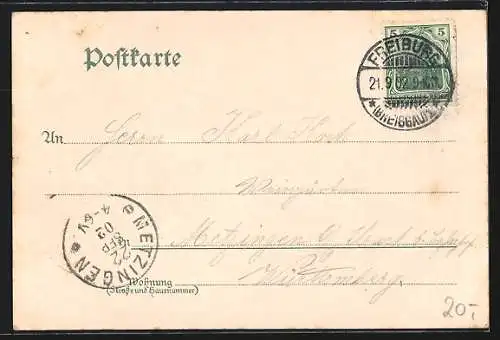 Postkarte
5 5
FREIBURG
21.9.02.9-
* (BREISGAU) *
An Herrn Karl
Weingärtner
Metzingen
in
Württemberg
Wohnung
(Straße und Hausnummer)
METZINGEN
22
SEP
02
4-6V
20.-